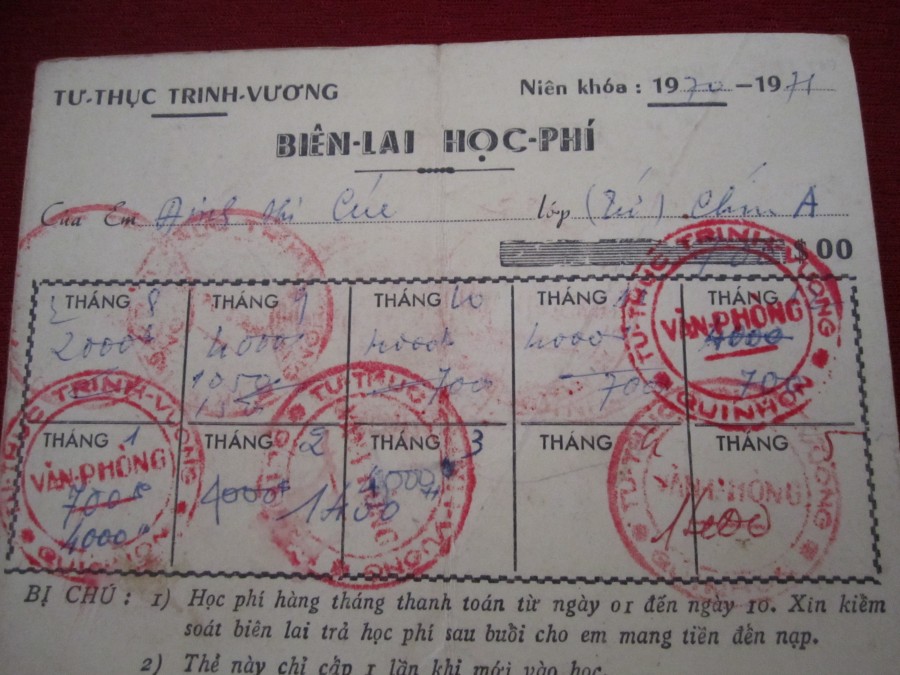 TƯ-THỤC TRINH-VƯƠNG
Niên khóa : 1970-1971
BIÊN-LAI HỌC-PHÍ
Của Em Đinh thị Cúc lớp (Tứ) Chín A
$ 00
THÁNG 8 THÁNG 9 THÁNG 10 THÁNG THÁNG
2000đ 4000đ 4000đ 4000đ 4000
1050 700 700 700
THÁNG 1 THÁNG 2 THÁNG 3 THÁNG 4 THÁNG 5
700đ 4000đ 4000đ
4000đ 1400
TƯ-THỤC TRINH-VƯƠNG
VĂN-PHÒNG
QUINHƠN
TƯ-THỤC TRINH-VƯƠNG
VĂN-PHÒNG
QUINHƠN
TƯ-THỤC TRINH-VƯƠNG
VĂN-PHÒNG
BỊ CHÚ : 1) Học phí hàng tháng thanh toán từ ngày 01 đến ngày 10. Xin kiểm
soát biên lai trả học phí sau buổi cho em mang tiền đến nạp.
2) Thẻ này chỉ cấp 1 lần khi mới vào học.